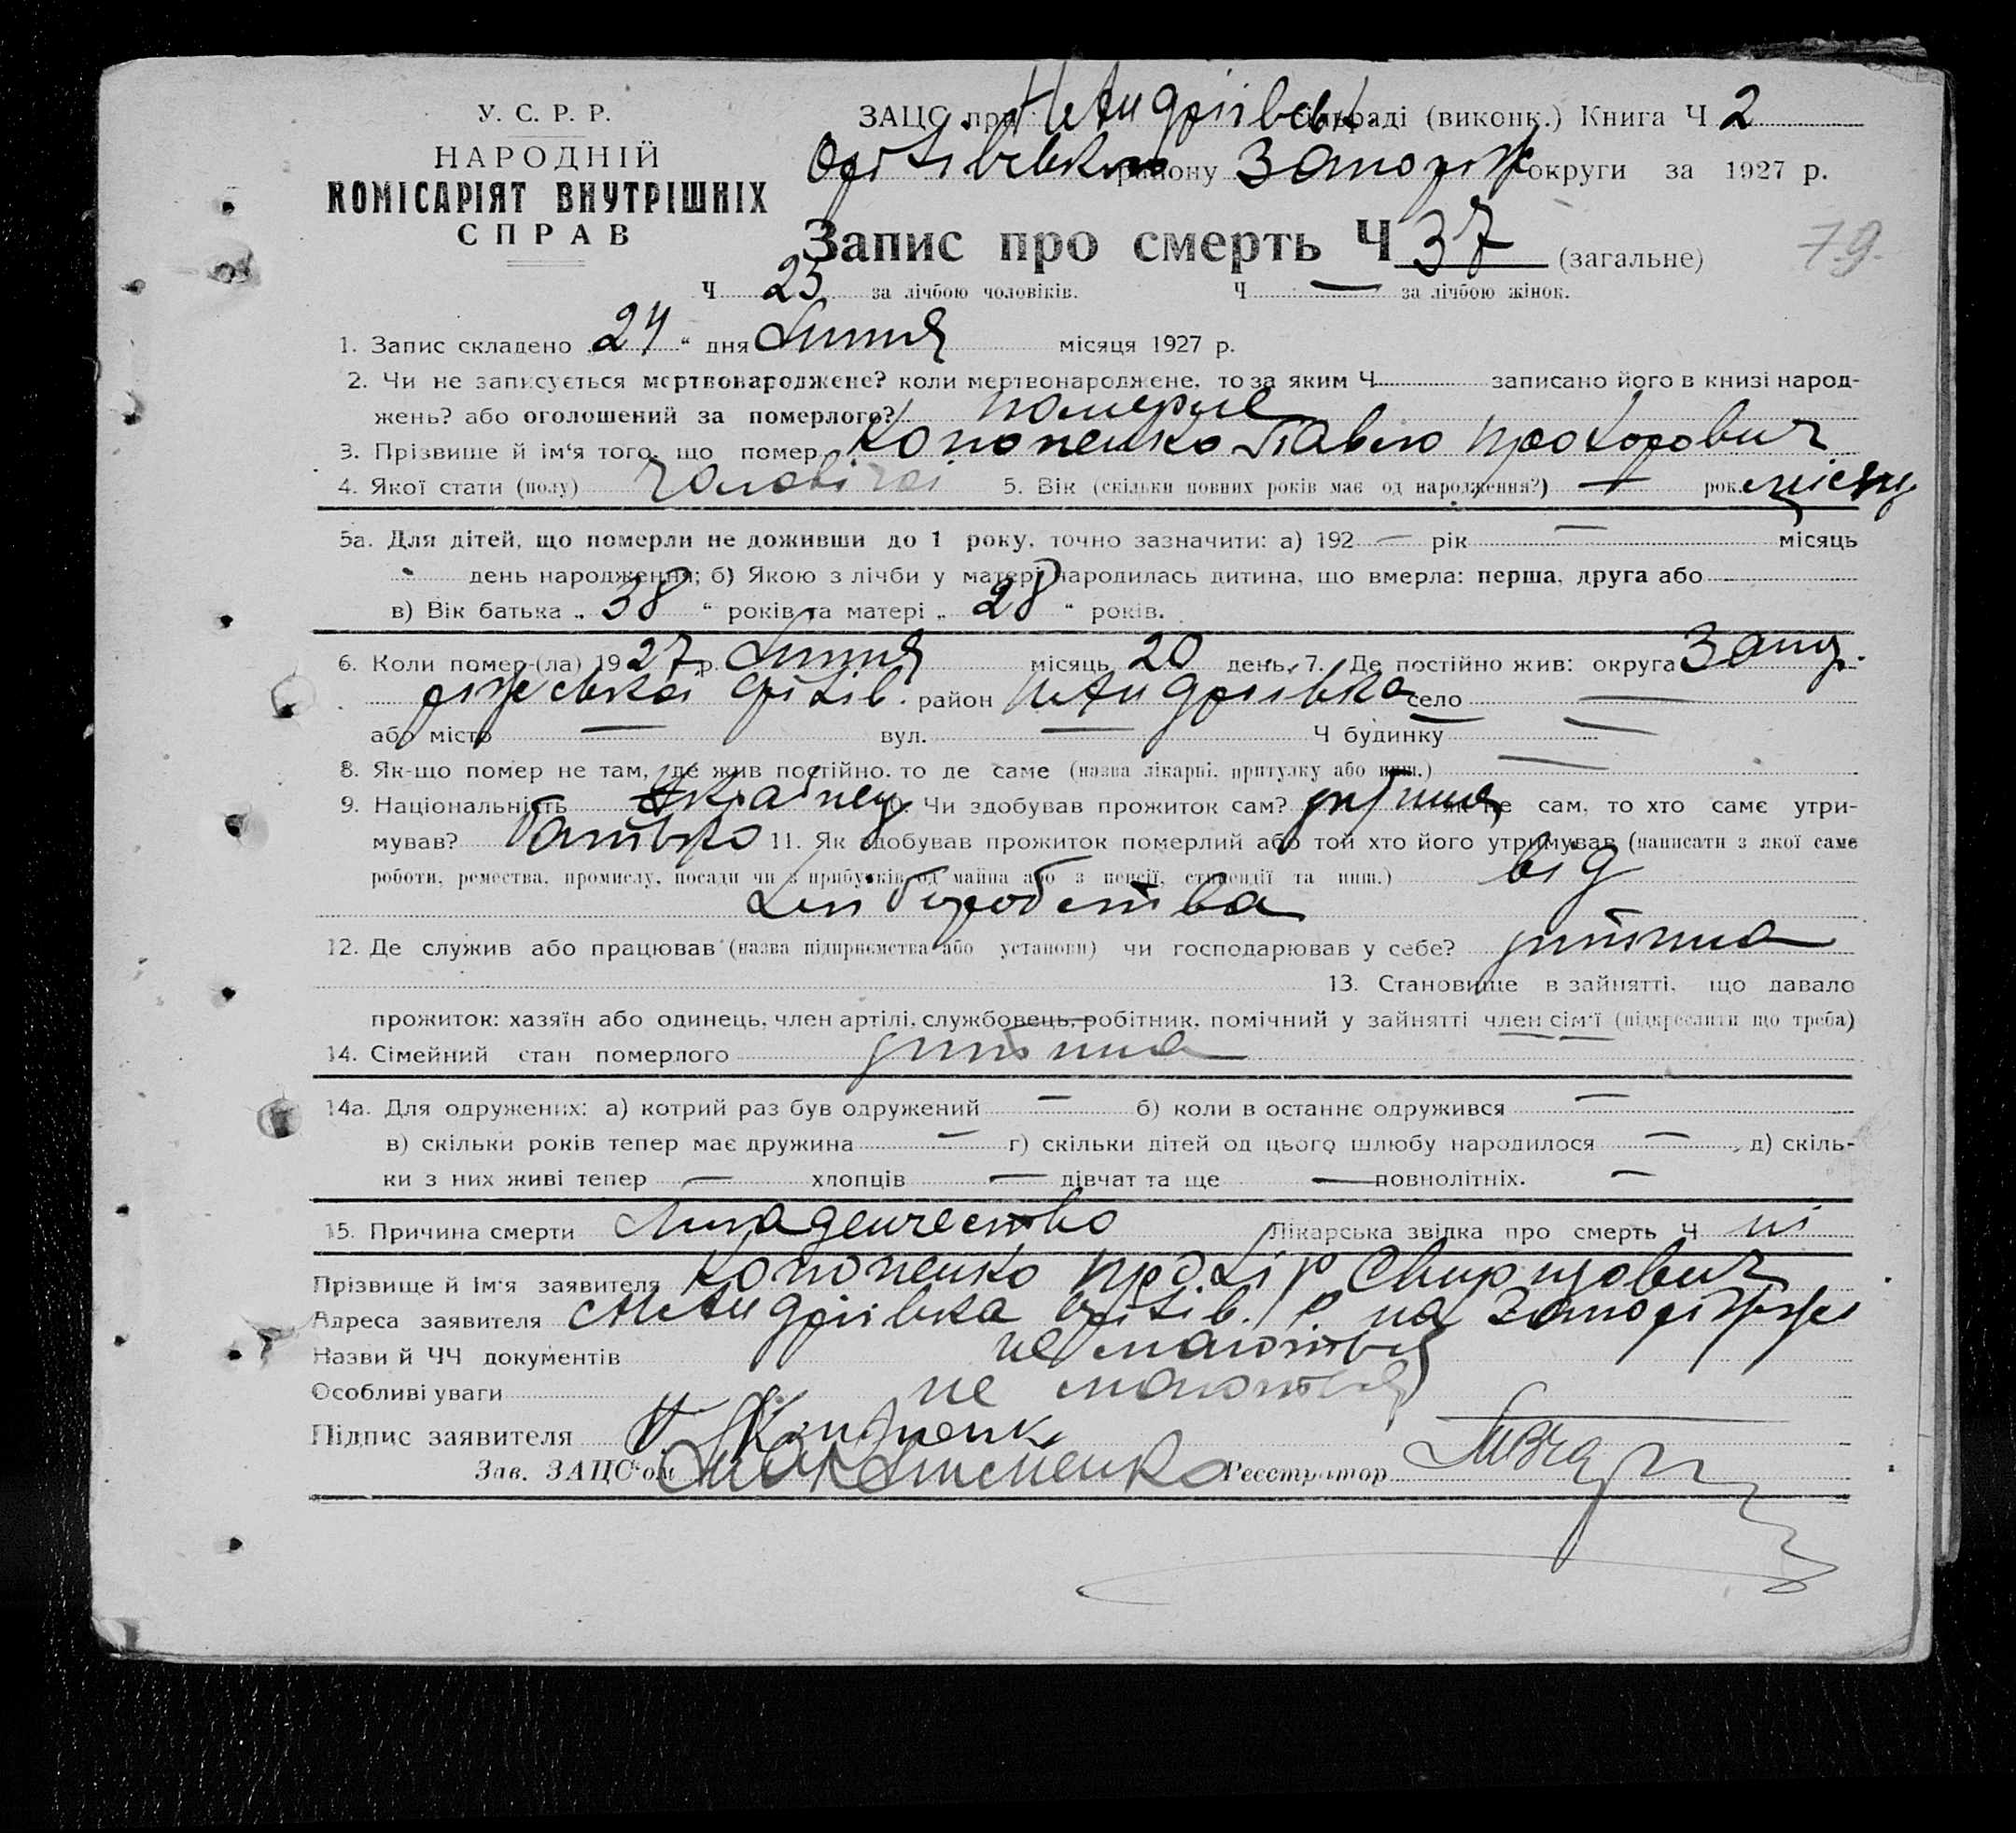 У. С. Р. Р.
НАРОДНІЙ
КОМІСАРІЯТ ВНУТРІШНІХ
СПРАВ
ЗАЦС при сільраді (виконк.) Книга Ч 2
Оріхівського району Запоріж округи за 1927 р.
Запис про смерть Ч 37 (загальне)
79.
Ч 25 за лічбою чоловіків. Ч — за лічбою жінок.
1. Запис складено „24“ дня Липня місяця 1927 р.
2. Чи не записується мертвонароджене? коли мертвонароджене, то за яким Ч записано його в книзі народ-
жень? або оголошений за померлого? померле
3. Прізвище й ім‘я того, що помер Кононенко Павло Прохорович
4. Якої стати (полу) чоловічої 5. Вік (скільки повних років має од народження?) рок. місяц
5а. Для дітей, що померли не доживши до 1 року, точно зазначити: а) 192 — рік — місяць
день народження; б) Якою з лічби у матері народилась дитина, що вмерла: перша, друга або
в) Вік батька „ 38 “ років та матері „ 28 “ років.
6. Коли помер-(ла) 1927 р. Липня місяць 20 день, 7. Де постійно жив: округа Запо-
ріжської Оріхів. район село —
або місто — вул. — Ч будинку —
8. Як-що помер не там, де жив постійно, то де саме (назва лікарні, притулку або инш.) —
9. Національність Українец Чи здобував прожиток сам? дитина як не сам, то хто саме утри-
мував? батько 11. Як здобував прожиток померлий або той хто його утримував (написати з якої саме
роботи, ремества, промислу, посади чи з прибутків од майна або з пенсії, стипендії та инш.) від
Хліборобства
12. Де служив або працював (назва підприємства або установи) чи господарював у себе? дитина
13. Становище в зайнятті, що давало
прожиток: хазяїн або одинець, член артілі, службовець, робітник, помічний у зайнятті член сім‘ї (підкреслити що треба)
14. Сімейний стан померлого дитина
14а. Для одружених: а) котрий раз був одружений — б) коли в останнє одружився —
в) скільки років тепер має дружина — г) скільки дітей од цього шлюбу народилося —, д) скіль-
ки з них живі тепер — хлопців — дівчат та ще — повнолітніх. —
15. Причина смерти Младенчество Лікарська звідка про смерть Ч ні
Прізвище й ім‘я заявителя Кононенко Прохір Свиридович
Адреса заявителя Оріхів. р. на Запоріжжі
Назви й ЧЧ документів не мається
Особливі уваги не мається
Підпис заявителя П. Кононенк
Зав. ЗАЦС‘ом Реєстратор